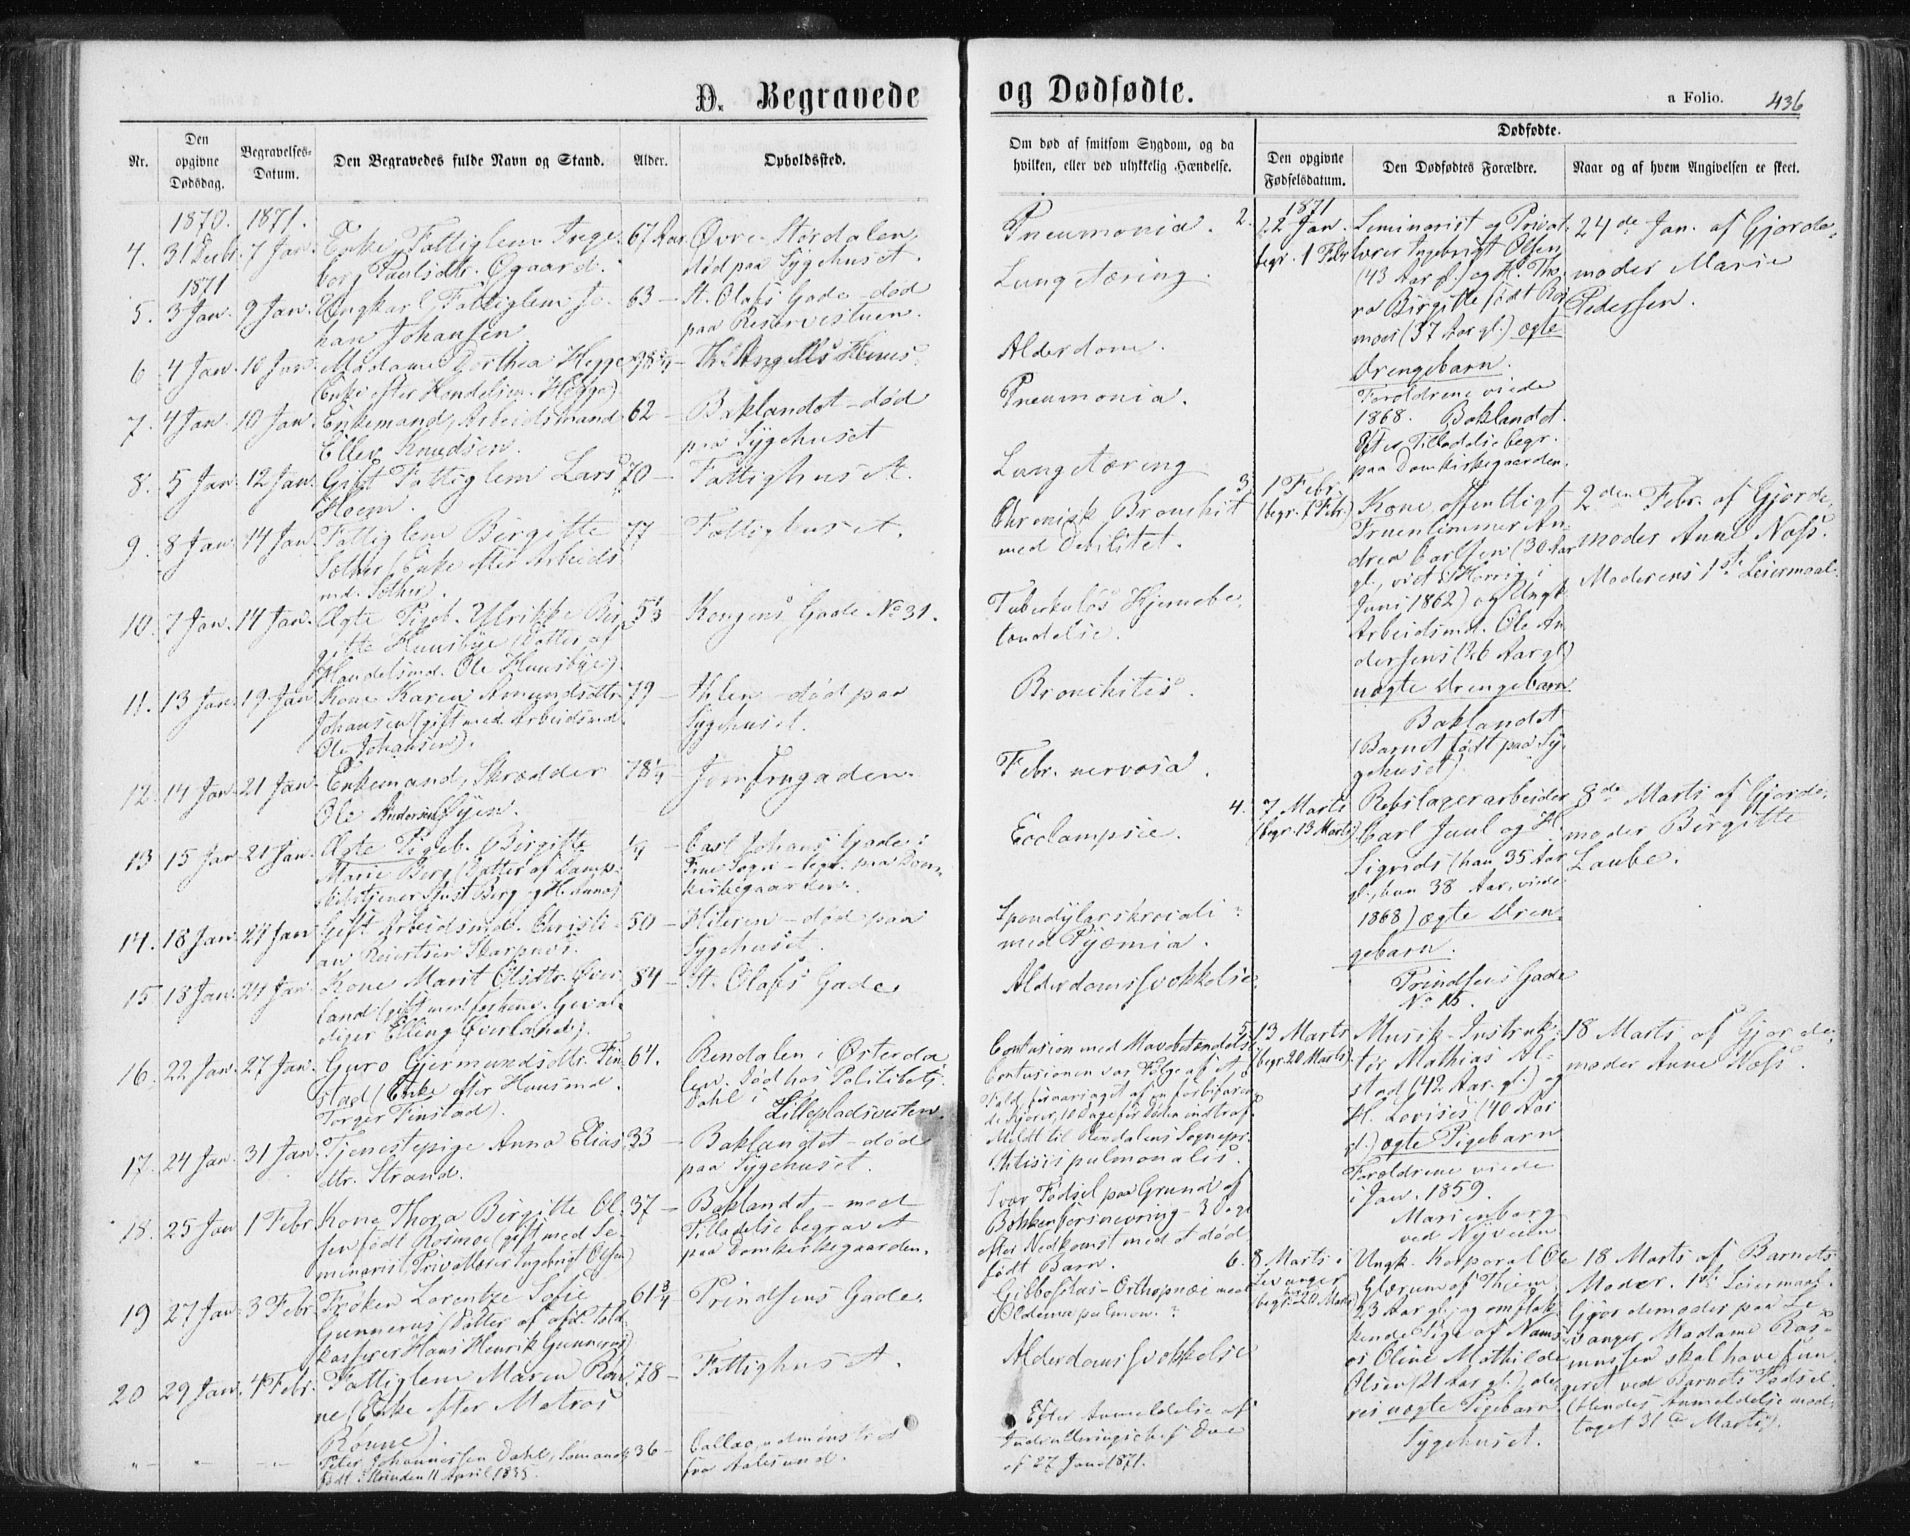 D. Begravede
og Dødfødte.
a Folio. 436
Nr.
Den opgivne Dødsdag.
Begravelses-Datum.
Den Begravedes fulde Navn og Stand.
Alder.
Opholdssted.
Om død af smitsom Sygdom, og da
hvilken, eller ved ulykkelig Hændelse.
Dødfødte.
Den opgivne Fødselsdatum.
Den Dødfødtes Forældre.
Naar og af hvem Angivelsen er skeet.
1870. 1871.
4. 31 Decbr. 7 Jan. Enke Fattiglem Inge- 67 Aar. Øvre Stordalen
borg Paulsdtr. Øgaard. død paa Sygehuset.
1871
5. 3 Jan. 9 Jan. Ungkarl, Fattiglem Jo- 63 - St. Olafs Gade - død
han Johansen paa Reservestuen.
6 4 Jan. 10 Jan. Madame Dorthea Hegge Th. Angells Huus.
(Enke efter Handelsm. Hegge)
7. 4 Jan. 10 Jan. Enkemand, Arbeidsmand 62 - Baklandet - død
Eller Knudsen. paa Sygehuset
8. 5 Jan. 12 Jan. Gift Fattiglem Lars 70 - Fattighuset.
Hoem.
9. 8 Jan. 14 Jan. Fattiglem Birgitte 77 - Fattighuset.
Sæther (Enke efter Arbeids
md. Sæther).
10. 7 Jan. 14 Jan. Ægte Pigeb. Ulrikke Bir- 5 1/3 Kongens Gade No 31.
gitte Huusbye (Datter af
Handelsmd. Ole Huusbye).
11. 13 Jan. 19 Jan. Kone Karen Amundsdtr. 79 - Ihlen - død paa
Johansen (gift med Arbeidsmd. Sygehuset.
Ole Johansen).
12. 14 Jan. 21 Jan. Enkemand, Skrædder 78 1/4 - Jomfrugaden.
Ole Andersen Øyen.
13 15 Jan. 21 Jan. Ægte Pigeb. Birgitte 1/4 - Carl Johans Gade i
Marie Berg (Datter af Damp- Frue Sogn - begr. paa Dom-
skibstjener Just Berg og H. Anna) kirkegaarden.
14. 18 Jan. 24 Jan Gift Arbeidsmd. Christi- 50 - Hiteren - død paa
an Reiertsen Skarpnæs. Sygehuset.
15 18 Jan. 24 Jan. Kone Marit Olsdtr. Øver- 84 - St. Olafs Gade.
land (gift med forhenv. Geval-
diger Elling Øverland).
16. 22 Jan. 27 Jan. Guro Gjermundsdtr. Fin- 64. Rendalen i Østerda-
stad (Enke efter Huusmd. len. Død hos Politibetj.
Torger Finstad). Dahl i Lillepladsveiten.
17. 24 Jan. 31 Jan. Tjenestepige Anna Elias- 33 - Baklandet - død
dtr. Strand. paa Sygehuset.
18. 25 Jan 1 Febr. Kone Thora Birgitte Ol- 37 - Baklandet - med
sen født Rosmoe (gift med Se- Tilladelse begravet
minarist, Privatlærer Ingebrigt Olsen) paa Domkirkegaarden.
19 27 Jan. 3 Febr. Frøken Lorentze Sofie 61 3/4 Prindsens Gade.
Gunnerus (Datter af afd. Told-
kasserer Hans Henrik Gunnerus)
20 29 Jan. 4 Febr. Fattiglem Maren Røn- 78 - Fattighuset.
ne (Enke efter Matros
Rønne)
" " " Peter Johannessen Dahl, Sømand, 36 - Callao, udmønstret
født i Strinden 11 April 1835. fra Aalesund.
Pneumonia.
Lungetæring.
Alderdom.
Pneumonia.
Lungetæring
Chronisk Bronchit
med Debilitet.
Tuberkuløs Hjernebe-
tændelse.
Bronchitis.
Febr. nervosa.
Ecclampsie.
med Pyæmia.
Alderdomssvækkelse
Contusionen var Følge af et
Fald, foraarsaget af en forbifaren-
de Kjører, 10 Dage før Døden indtraf.
Meldt til Rendalens Sognepr.
Phtisis pulmonalis.
Svær Fødsel paa Grund af
Bækkenforsnevring - 3 Dage
efter Nedkomst med et død-
født Barn.
Gibbositas - Orthopnøi med
Oedema pulmon. ?
Alderdomssvækkelse
Efter Anmeldelse af
Indrulleringschef Due
af 27 Juni 1871.
1871
2. 22 Jan. Seminarist og Privat- 24de Jan. af Gjorde-
begr. 1 Febr. lærer Ingebrigt Olsen moder Marie
(43 Aar gl.) og H. Tho- Pedersen.
ra Birgitte født Ros-
moe (37 Aar gl.) ægte
Drengebarn.
Forældrene viede
1868. Baklandet.
Efter Tilladelse begr.
paa Domkirkegaarden.
3 1 Febr. Kone, offentligt 2den Febr. af Gjorde-
(begr. 7 Febr.) Fruentimmer An- moder Anne Næss.
drea Carlsen (30 Aar Moderens 1ste Leiermaal.
gl., viet i Horrig i
Juni 1862) og Ungk.
Arbeidsmd. Ole An-
dersens (26 Aar gl.)
uægte Drengebarn.
Baklandet
(Barnet født paa Sy-
gehuset).
4. 7 Marts Rebslagerarbeider 8de Marts af Gjorde-
(begr. 13 Marts) Carl Juul og H. moder Birgitte
Sigrids (han 35 Aar Laube.
gl., hun 38 Aar, viede
1868) ægte Dren-
gebarn.
Prindsens Gade
No 15.
5. 13 Marts Musik-Instruk- 18 Marts af Gjorde-
(begr. 20 Marts). tør Mathias Al- moder Anne Næss.
stad (42 Aar gl.) og
H. Lovises (40 Aar
gl.) ægte Pigebarn
Forældrene viede
i Jan. 1859.
Marienborg
ved Nyveien
6. 8 Marts i Ungk. Korporal Ole 18 Marts af Barnets
Levanger Glærum af Thjem Moder. 1ste Leiermaal.
begr. 20 Marts) 23 Aar gl. og omflak- Gjordemoder paa Le-
kende Pige af Nams- vanger, Madame Ras-
os Oline Mathilde mussen skal have fun-
Olsen (21 Aar gl.), de- geret ved Barnets Fødsel.
res uægte Pigebarn. (Hendes Anmeldelse mod-
Sygehuset. taget 31te Marts).